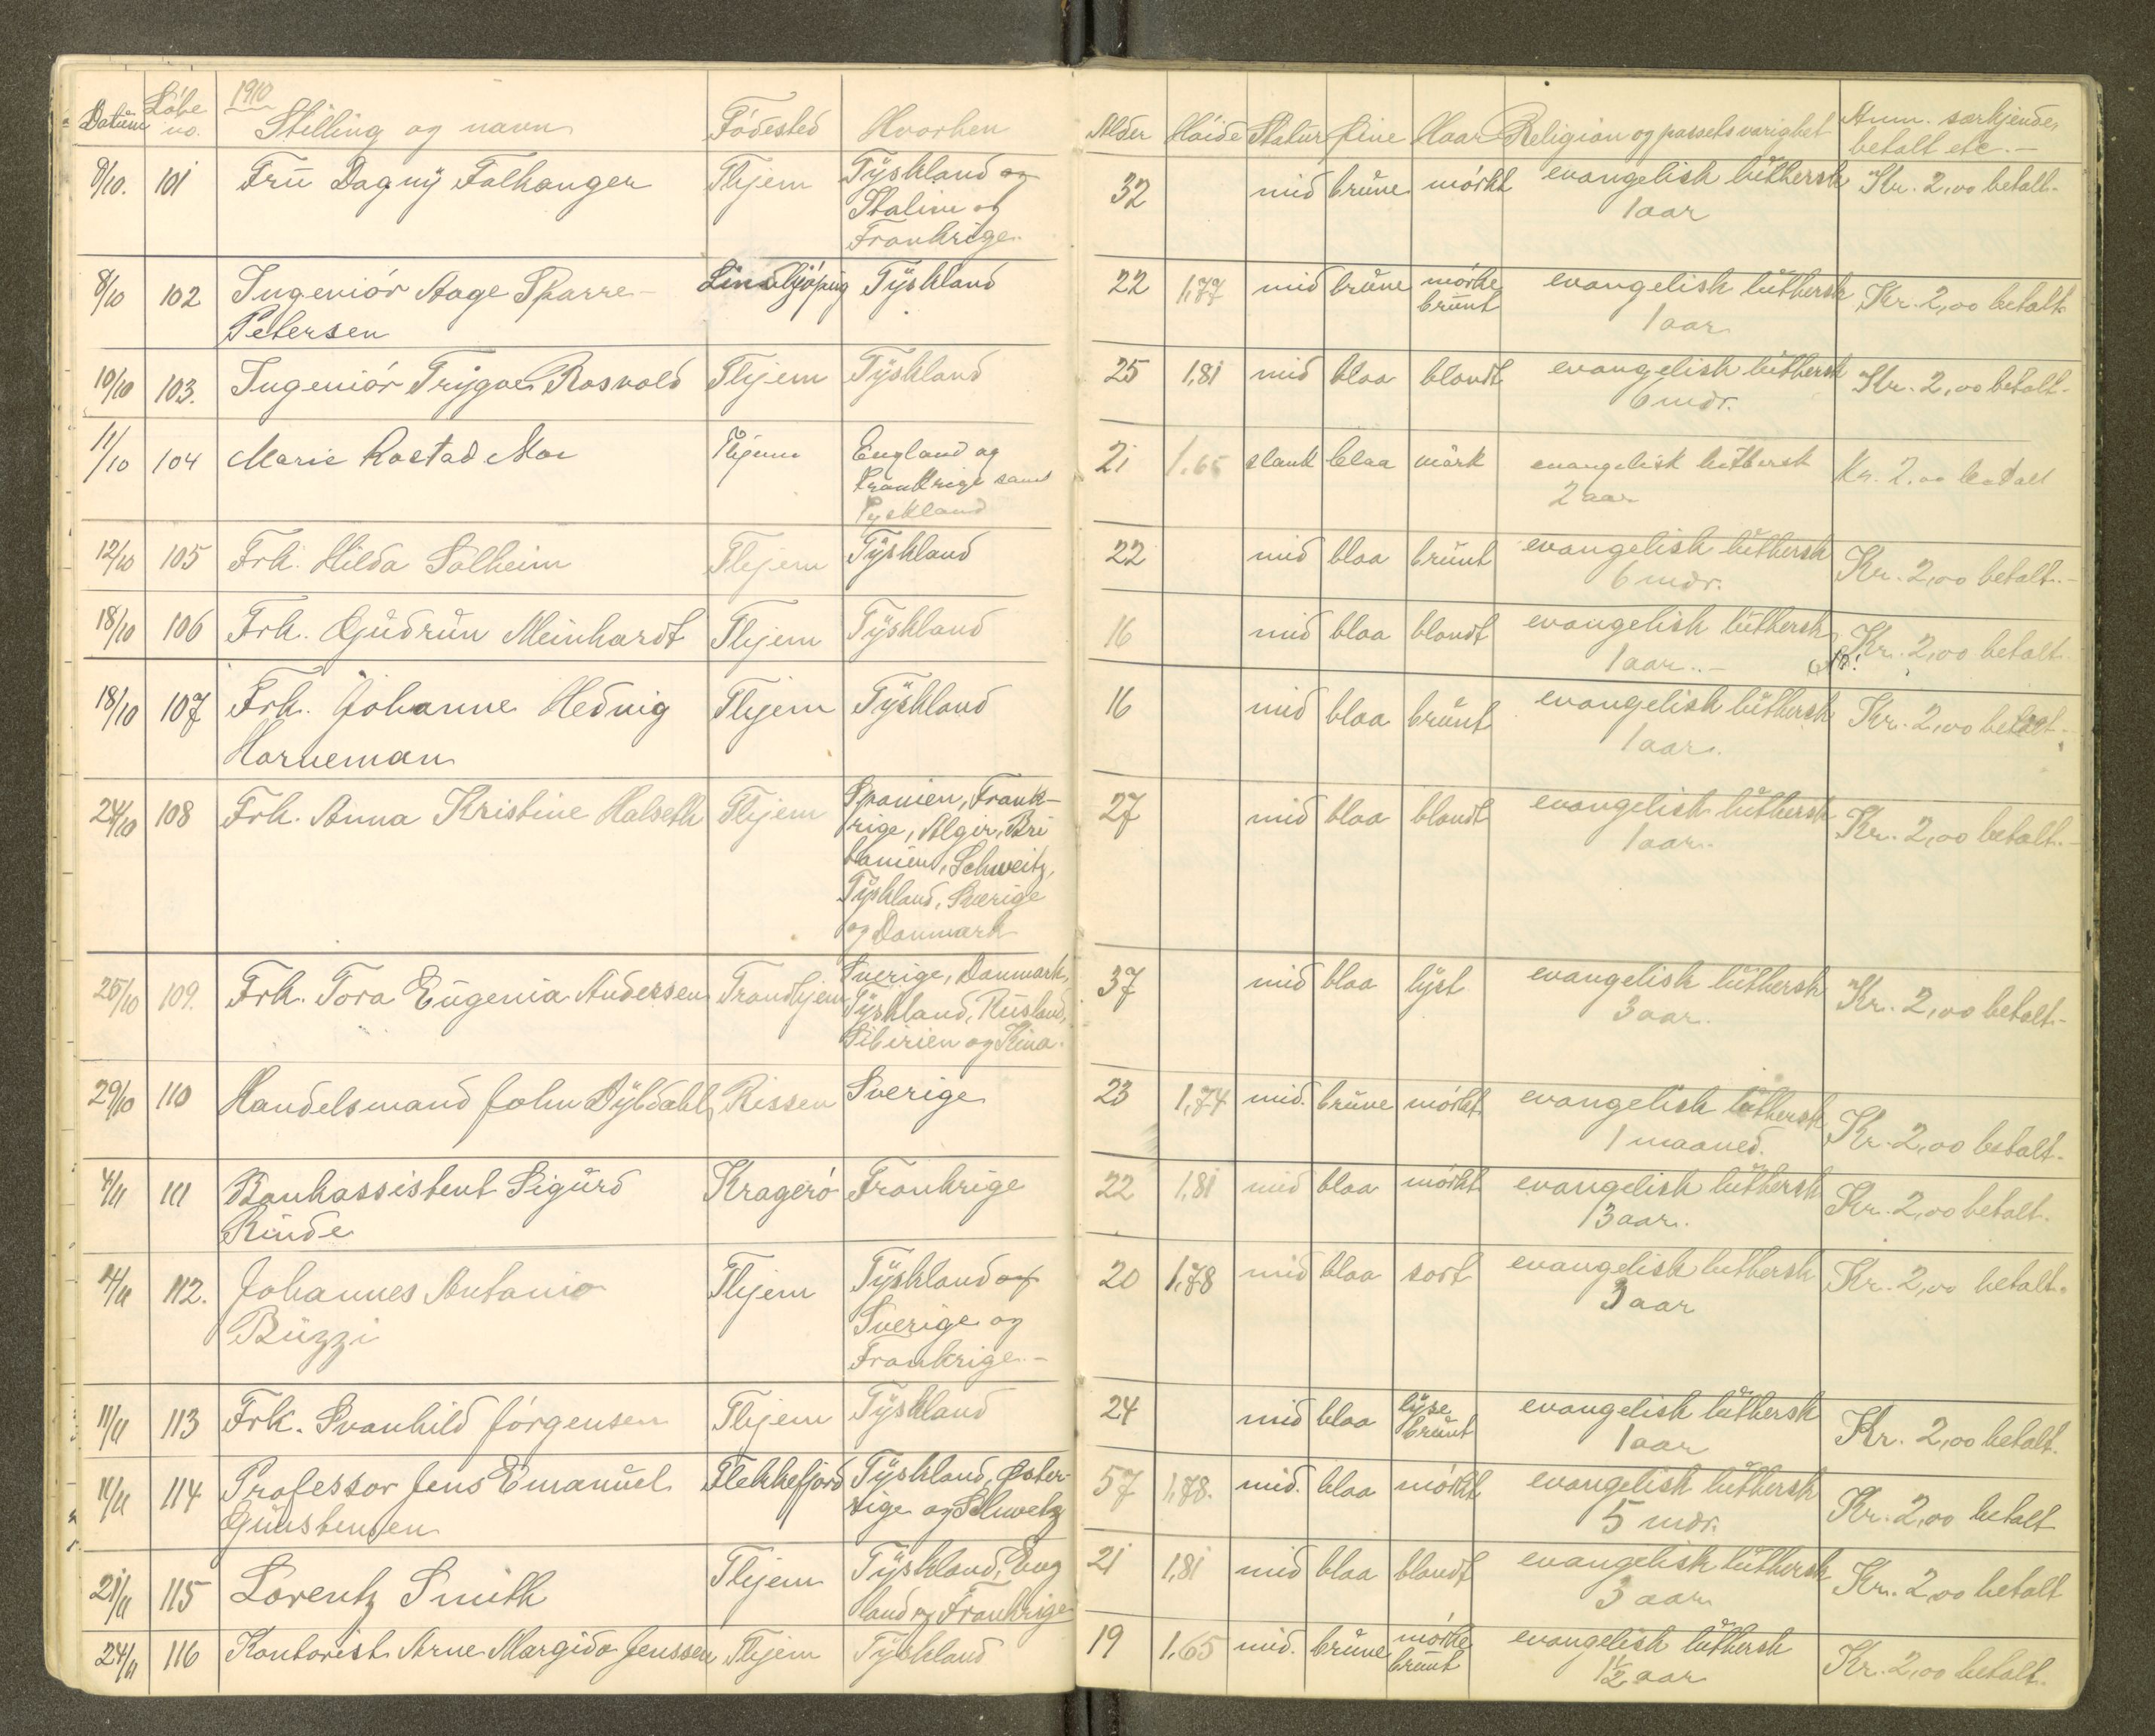 1910
Datum Löbe no. Stilling og navn Födested Hvorhen Alder Höide Statur Öine Haar Religion og passets varighet Anm. særkjender, betalt etc. —
8/10. 101 Frü Dagny Falkanger Thjem Tÿskland og Italien og Frankrige. 32 mid brüne mörkt evangelisk lüthersk 1 aar Kr. 2,00 betalt.
8/10 102 Ingeniör Aage Sparre-Petersen Lindkjöping Tÿskland 22 1,77 mid brüne mörke brünt evangelisk lüthersk 1 aar Kr. 2,00 betalt.
10/10 103. Ingeniör Trygve Rosvold Thjem Tÿskland 25 1,81 mid blaa blondt evangelisk lüthersk 6 mdr. Kr. 2,00 betalt.
11/10 104 Marie Rostad Moe Thjem England og Frankrige samt Tyskland 21 1.65 slank blaa mörk evangelisk luthersk 2 aar Kr. 2.00 betalt
12/10 105 Frk. Hilda Solheim Thjem Tÿskland 22 mid blaa brünt evangelisk lüthersk 6 mdr. Kr. 2,00 betalt. —
18/10 106 Frk. Güdrün Meinhardt Thjem Tÿskland 16 mid blaa blondt evangelisk lüthersk 1 aar. — Kr. 2,00 betalt.
18/10 107 Frk. Johanne Hedvig Horneman Thjem Tÿskland 16 mid blaa brünt evangelisk lüthersk 1 aar. Kr. 2,00 betalt.
24/10 108 Frk. Anna Kristine Halseth Thjem Spanien, Frank-rige, Algir, Bri tanien, Schweitz, Tÿskland, Sverige og Danmark 27 mid blaa blondt evangelisk lüthersk 1 aar. Kr. 2,00 betalt. —
25/10 109. Frk. Tora Eügenia Andersen Trondhjem Sverige, Danmark, Tÿskland, Rüsland, Sibirien og Kina. 37 mid blaa lÿst evangelisk lüthersk 3 aar. Kr. 2,00 betalt.
29/10 110 Handelsmand John Dÿbdahl Rissen Sverige 23 1,74 mid. brüne mörkt evangelisk lüthersk 1 maaned. Kr. 2,00 betalt.
4/11 111 Bankassistent Sigürd Rinde Kragerö Frankrige 22 1,81 mid blaa mörkt evangelisk lüthersk 3 aar. Kr. 2,00 betalt.
4/11 112. Johannes Antonio Büzzi Thjem Tÿskland og Sverige og Frankrige. — 20 1,78 mid blaa sort evangelisk luthersk 3 aar Kr. 2,00 betalt.
11/11 113 Frk. Svanhild Jörgensen Thjem Tÿskland 24 mid blaa lÿse brünt evangelisk lüthersk 1 aar Kr. 2,00 betalt.
11/11 114 Professor Jens Emanüel Günstensen Flekkefjord Tÿskland, Øster-rige og Schweitz 57 1,78. mid. blaa mörkt evangelisk lüthersk 5 mdr. Kr. 2,00 betalt
21/11 115 Lorentz Smith Thjem Tÿskland, Eng land og Frankrige 21 1,81 mid blaa blondt evangelisk lüthersk 3 aar Kr. 2,00 betalt
24/11 116 Kontorist Arne Margido Jenssen Thjem Tÿskland 19 1,65 mid. brüne mörke brünt evangelisk lüthersk 1½ aar Kr. 2,00 betalt.